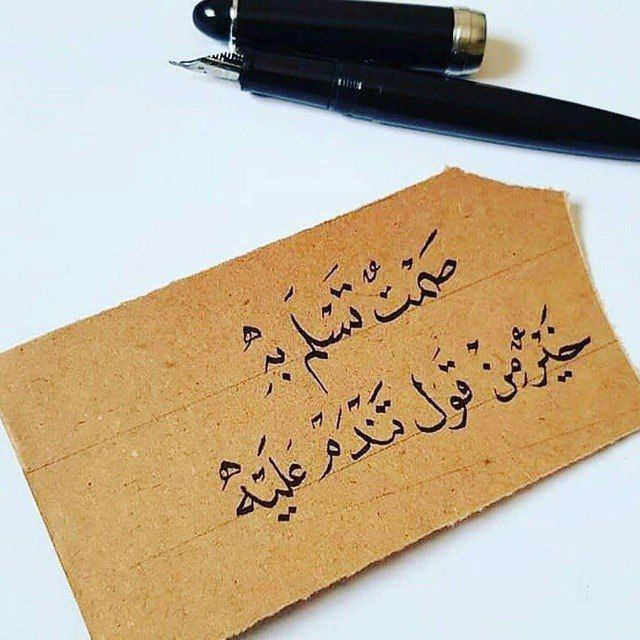 صَمْتٌ تَسْلَمَ بِهِ
خَيْرٌ مِنْ قَوْلٍ تَنْدَمْ عَلَيْهِ